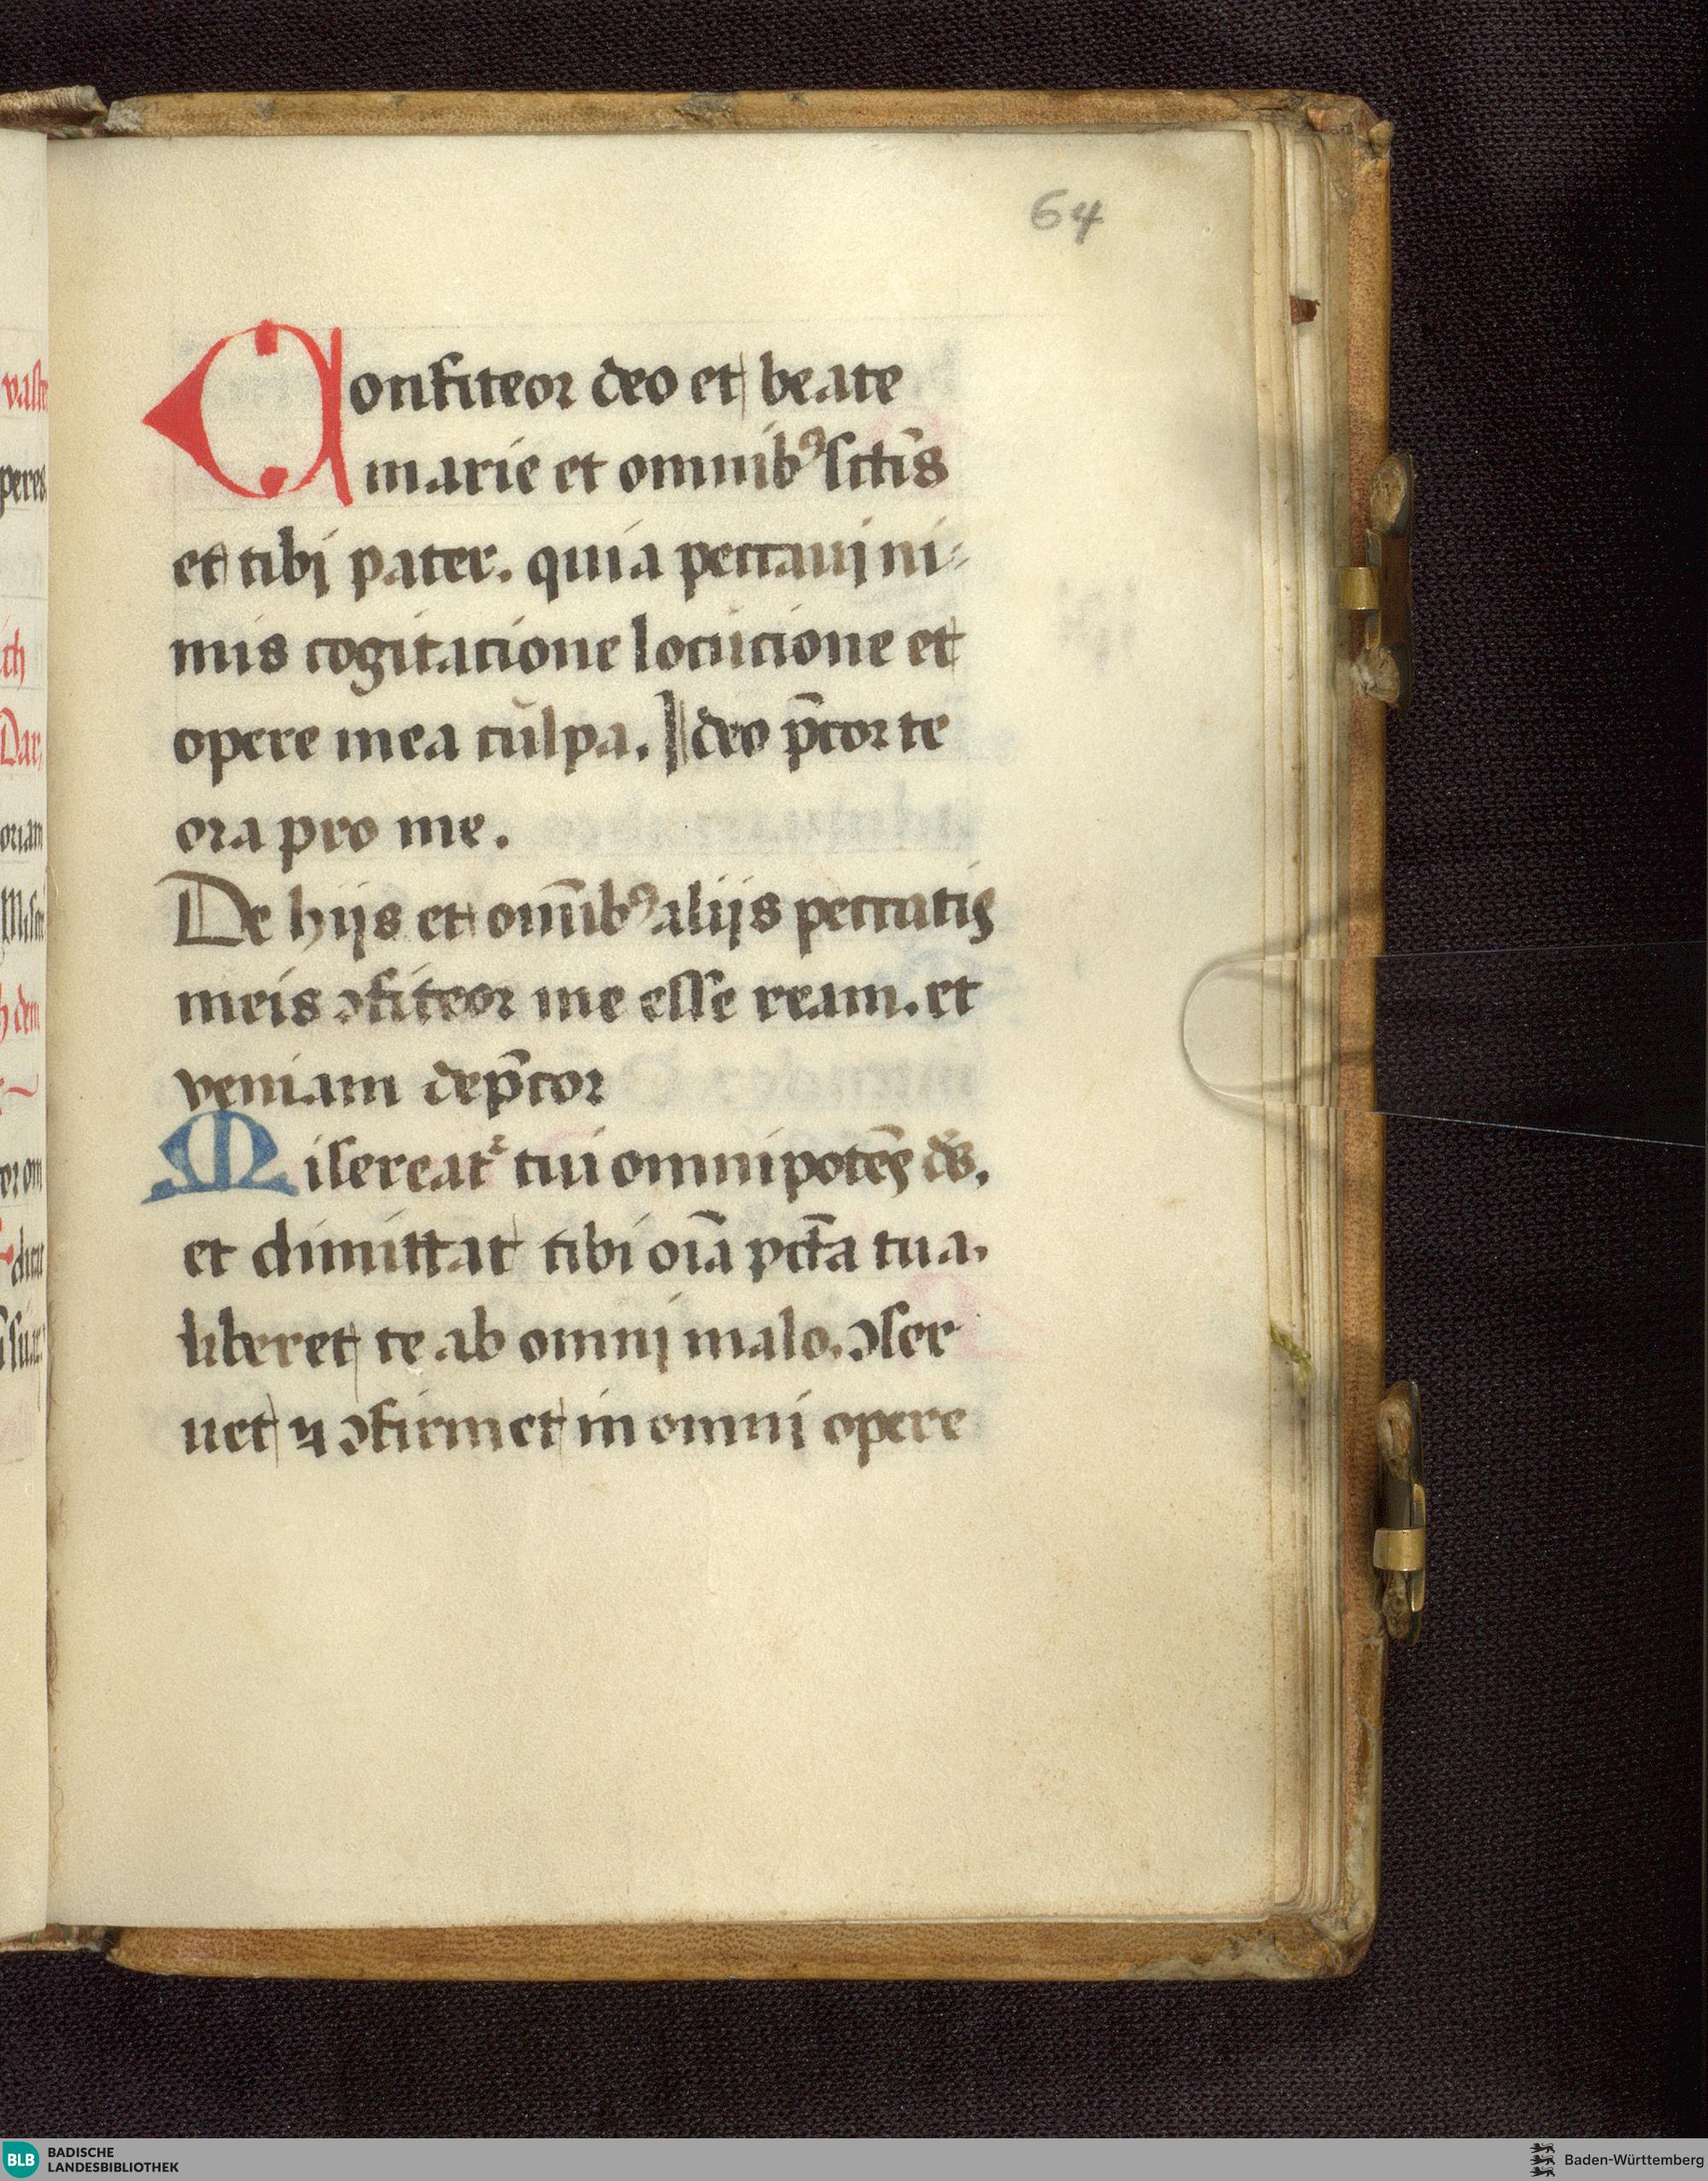 64
Confiteor deo et beate
marie et omnibꝰ sctis̄
et tibi pater. quia peccaui ni-
mis cogitacione locucione et
opere mea culpa. Ideo p̄cor te
ora pro me.
De hijs et om̄ibꝰ alijs peccatis
meis ꝯfiteor me esse ream. et
veniam dep̄cor
Misereat᷑ tui omnipotēs ds̄.
et dimittat tibi oīa pct̄a tua.
liberet te ab omni malo. ꝯser
uet ⁊ ꝯfirmet in omni opere
vaste
peres
ich
Dar
oriam
Mise
h dem
or om
dicat
BLB BADISCHE
LANDESBIBLIOTHEK
Baden-Württemberg